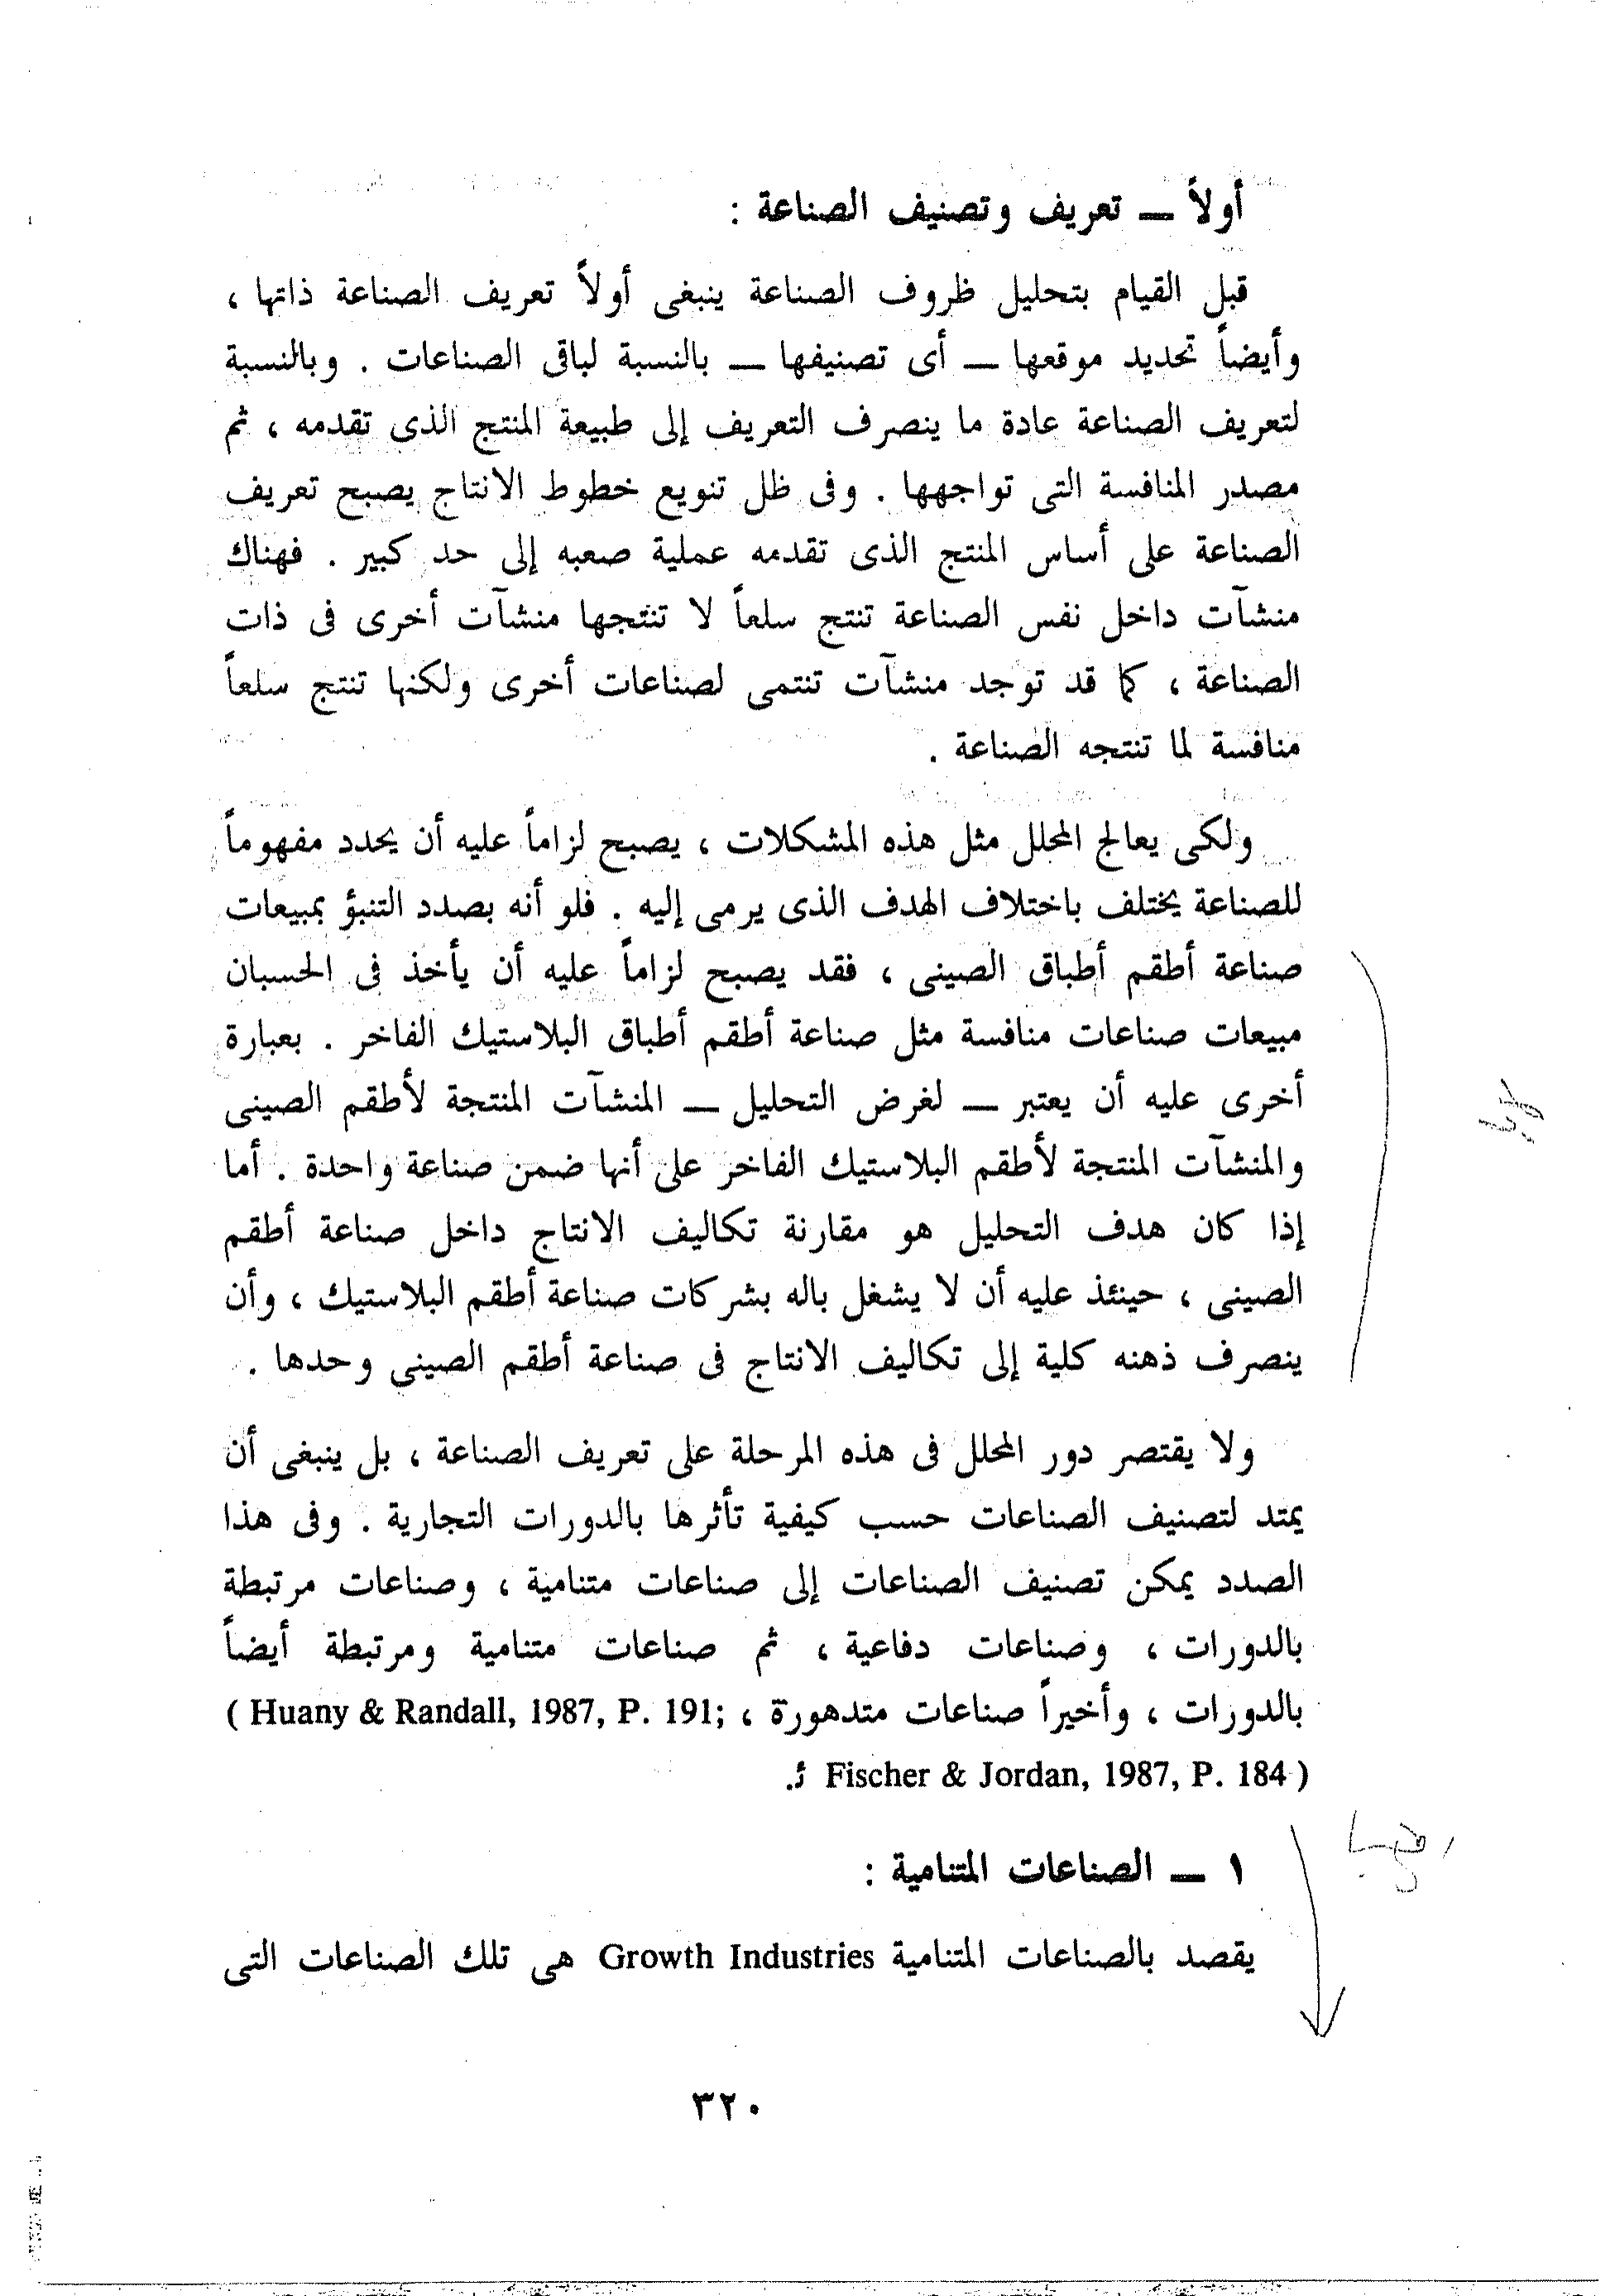 أولاً ــ تعريف وتصنيف الصناعة :
قبل القيام بتحليل ظروف الصناعة ينبغى أولاً تعريف الصناعة ذاتها ،
وأيضاً تحديد موقعها ــ أى تصنيفها ــ بالنسبة لباقى الصناعات . وبالنسبة
لتعريف الصناعة عادة ما ينصرف التعريف إلى طبيعة المنتج الذى تقدمه ، ثم
مصدر المنافسة التى تواجهها . وفى ظل تنويع خطوط الانتاج يصبح تعريف
الصناعة على أساس المنتج الذى تقدمه عملية صعبه إلى حد كبير . فهناك
منشآت داخل نفس الصناعة تنتج سلعاً لا تنتجها منشآت أخرى فى ذات
الصناعة ، كما قد توجد منشآت تنتمى لصناعات أخرى ولكنها تنتج سلعاً
منافسة لما تنتجه الصناعة .
ولكى يعالج المحلل مثل هذه المشكلات ، يصبح لزاماً عليه أن يحدد مفهوماً
للصناعة يختلف باختلاف الهدف الذى يرمى إليه . فلو أنه بصدد التنبؤ بمبيعات
صناعة أطقم أطباق الصينى ، فقد يصبح لزاماً عليه أن يأخذ فى الحسبان
مبيعات صناعات منافسة مثل صناعة أطقم أطباق البلاستيك الفاخر . بعبارة
أخرى عليه أن يعتبر ــ لغرض التحليل ــ المنشآت المنتجة لأطقم الصينى
والمنشآت المنتجة لأطقم البلاستيك الفاخر على أنها ضمن صناعة واحدة . أما
إذا كان هدف التحليل هو مقارنة تكاليف الانتاج داخل صناعة أطقم
الصينى ، حينئذ عليه أن لا يشغل باله بشركات صناعة أطقم البلاستيك ، وأن
ينصرف ذهنه كلية إلى تكاليف الانتاج فى صناعة أطقم الصينى وحدها .
ولا يقتصر دور المحلل فى هذه المرحلة على تعريف الصناعة ، بل ينبغى أن
يمتد لتصنيف الصناعات حسب كيفية تأثرها بالدورات التجارية . وفى هذا
الصدد يمكن تصنيف الصناعات إلى صناعات متنامية ، وصناعات مرتبطة
بالدورات ، وصناعات دفاعية ، ثم صناعات متنامية ومرتبطة أيضاً
بالدورات ، وأخيراً صناعات متدهورة ، (Huany & Randall, 1987, P. 191;
Fischer & Jordan, 1987, P. 184) .
١ ــ الصناعات المتنامية :
يقصد بالصناعات المتنامية Growth Industries هى تلك الصناعات التى
٣٢٠